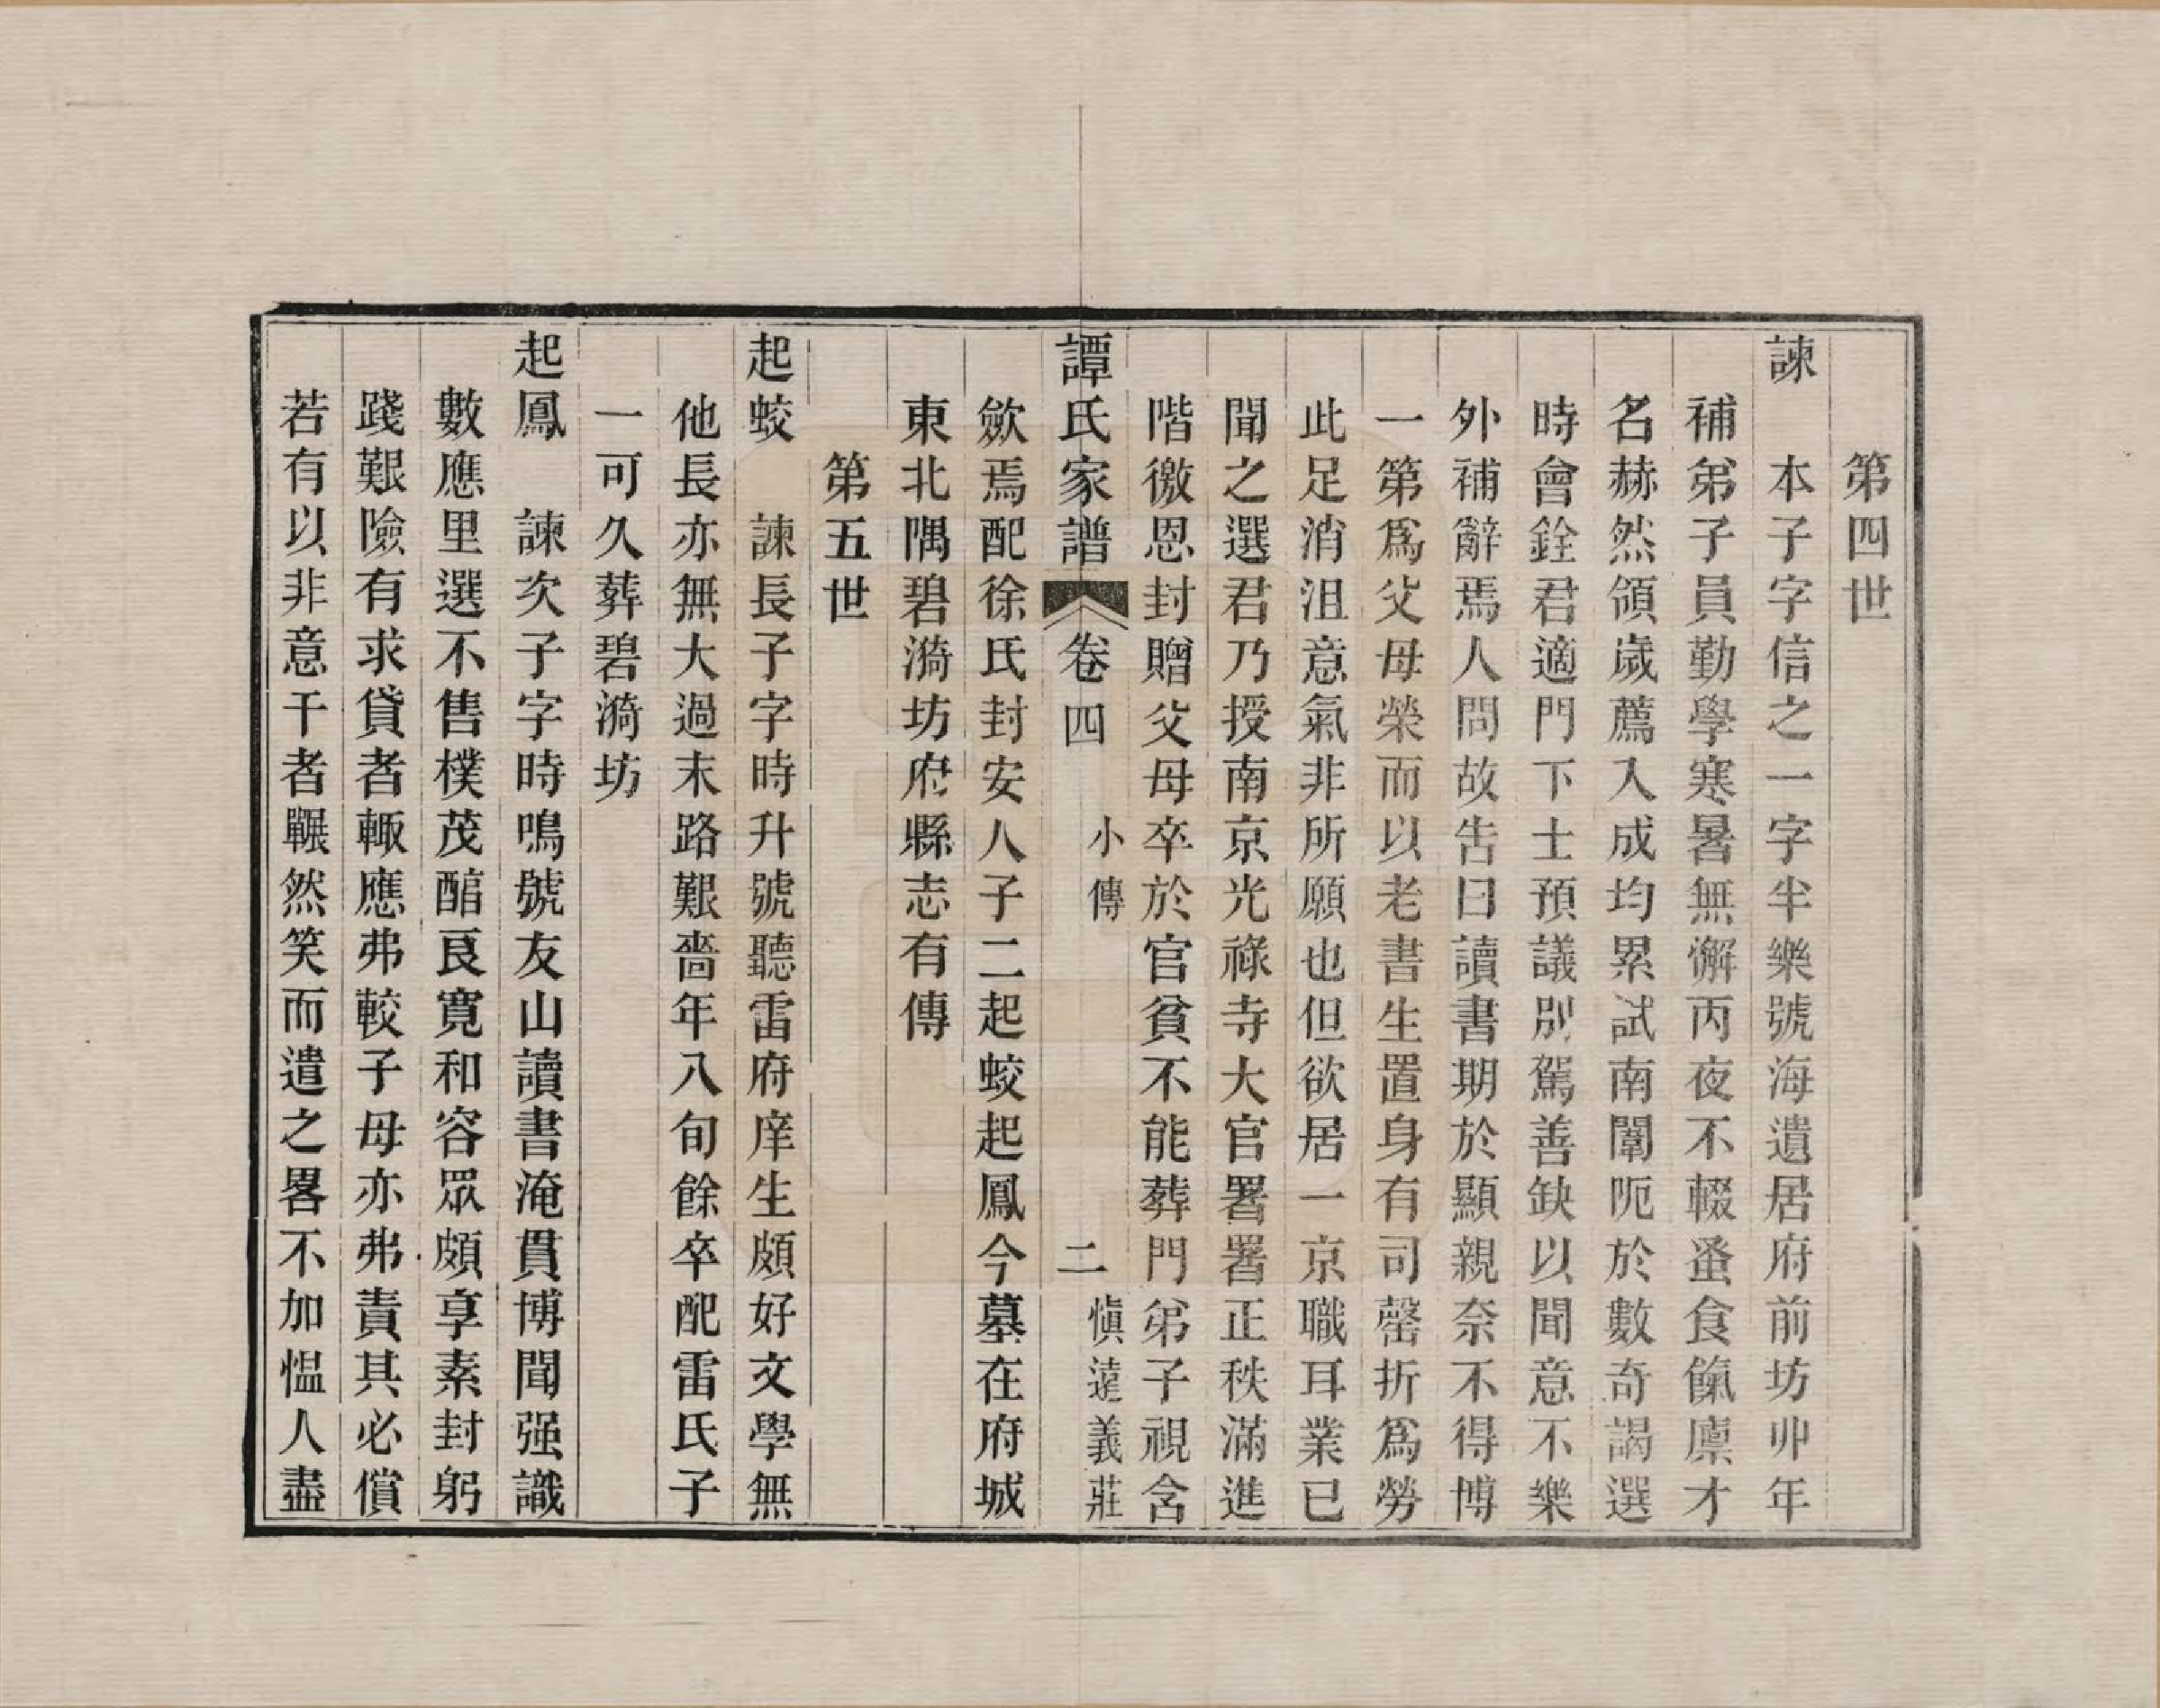 第四世
諫　本子字信之一字半樂號海遺居府前坊丱年
補弟子員勤學寒暑無懈丙夜不輟蚤食餼廪才
名赫然領歲薦入成均累試南闈阨於數奇謁選
時會銓君適門下士預議別駕善缺以聞意不樂
外補辭焉人問故告曰讀書期於顯親奈不得博
一第爲父母榮而以老書生置身有司罄折爲勞
此足消沮意氣非所願也但欲居一京職耳業已
聞之選君乃授南京光祿寺大官署署正秩滿進
階徼恩封贈父母卒於官貧不能葬門弟子視含
譚氏家譜　卷四　小傳　二　愼遠義莊
歛焉配徐氏封安人子二起蛟起鳳今墓在府城
東北隅碧漪坊府縣志有傳
第五世
起蛟　諫長子字時升號聽雷府庠生頗好文學無
他長亦無大過末路艱嗇年八旬餘卒配雷氏子
一可久葬碧漪坊
起鳳　諫次子字時鳴號友山讀書淹貫博聞强識
數應里選不售樸茂醕良寬和容眾頗享素封躬
踐艱險有求貸者輙應弗較子母亦弗責其必償
若有以非意干者囅然笑而遣之畧不加慍人盡